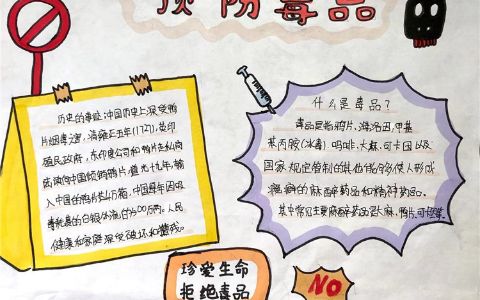 预防毒品
历史的事迹:中国历史上深受鸦
片烟毒害,清雍正五年(1727),英印
殖民政府,东印度公司和鸦片走私商
入中国的鸦片共4万箱,中国每年因吸
人民
健康和家庭深受破坏和
什么是毒品?
毒品是指鸦片,海洛因,甲基
苯丙胺(冰毒)吗啡,大麻,可卡因以及
国家规定管制的其他能够使人形成
瘾癖的麻醉药品和精神药品。
其中常见主要麻醉药品是大麻,鸦片,可
珍爱生命
拒绝毒品
NO